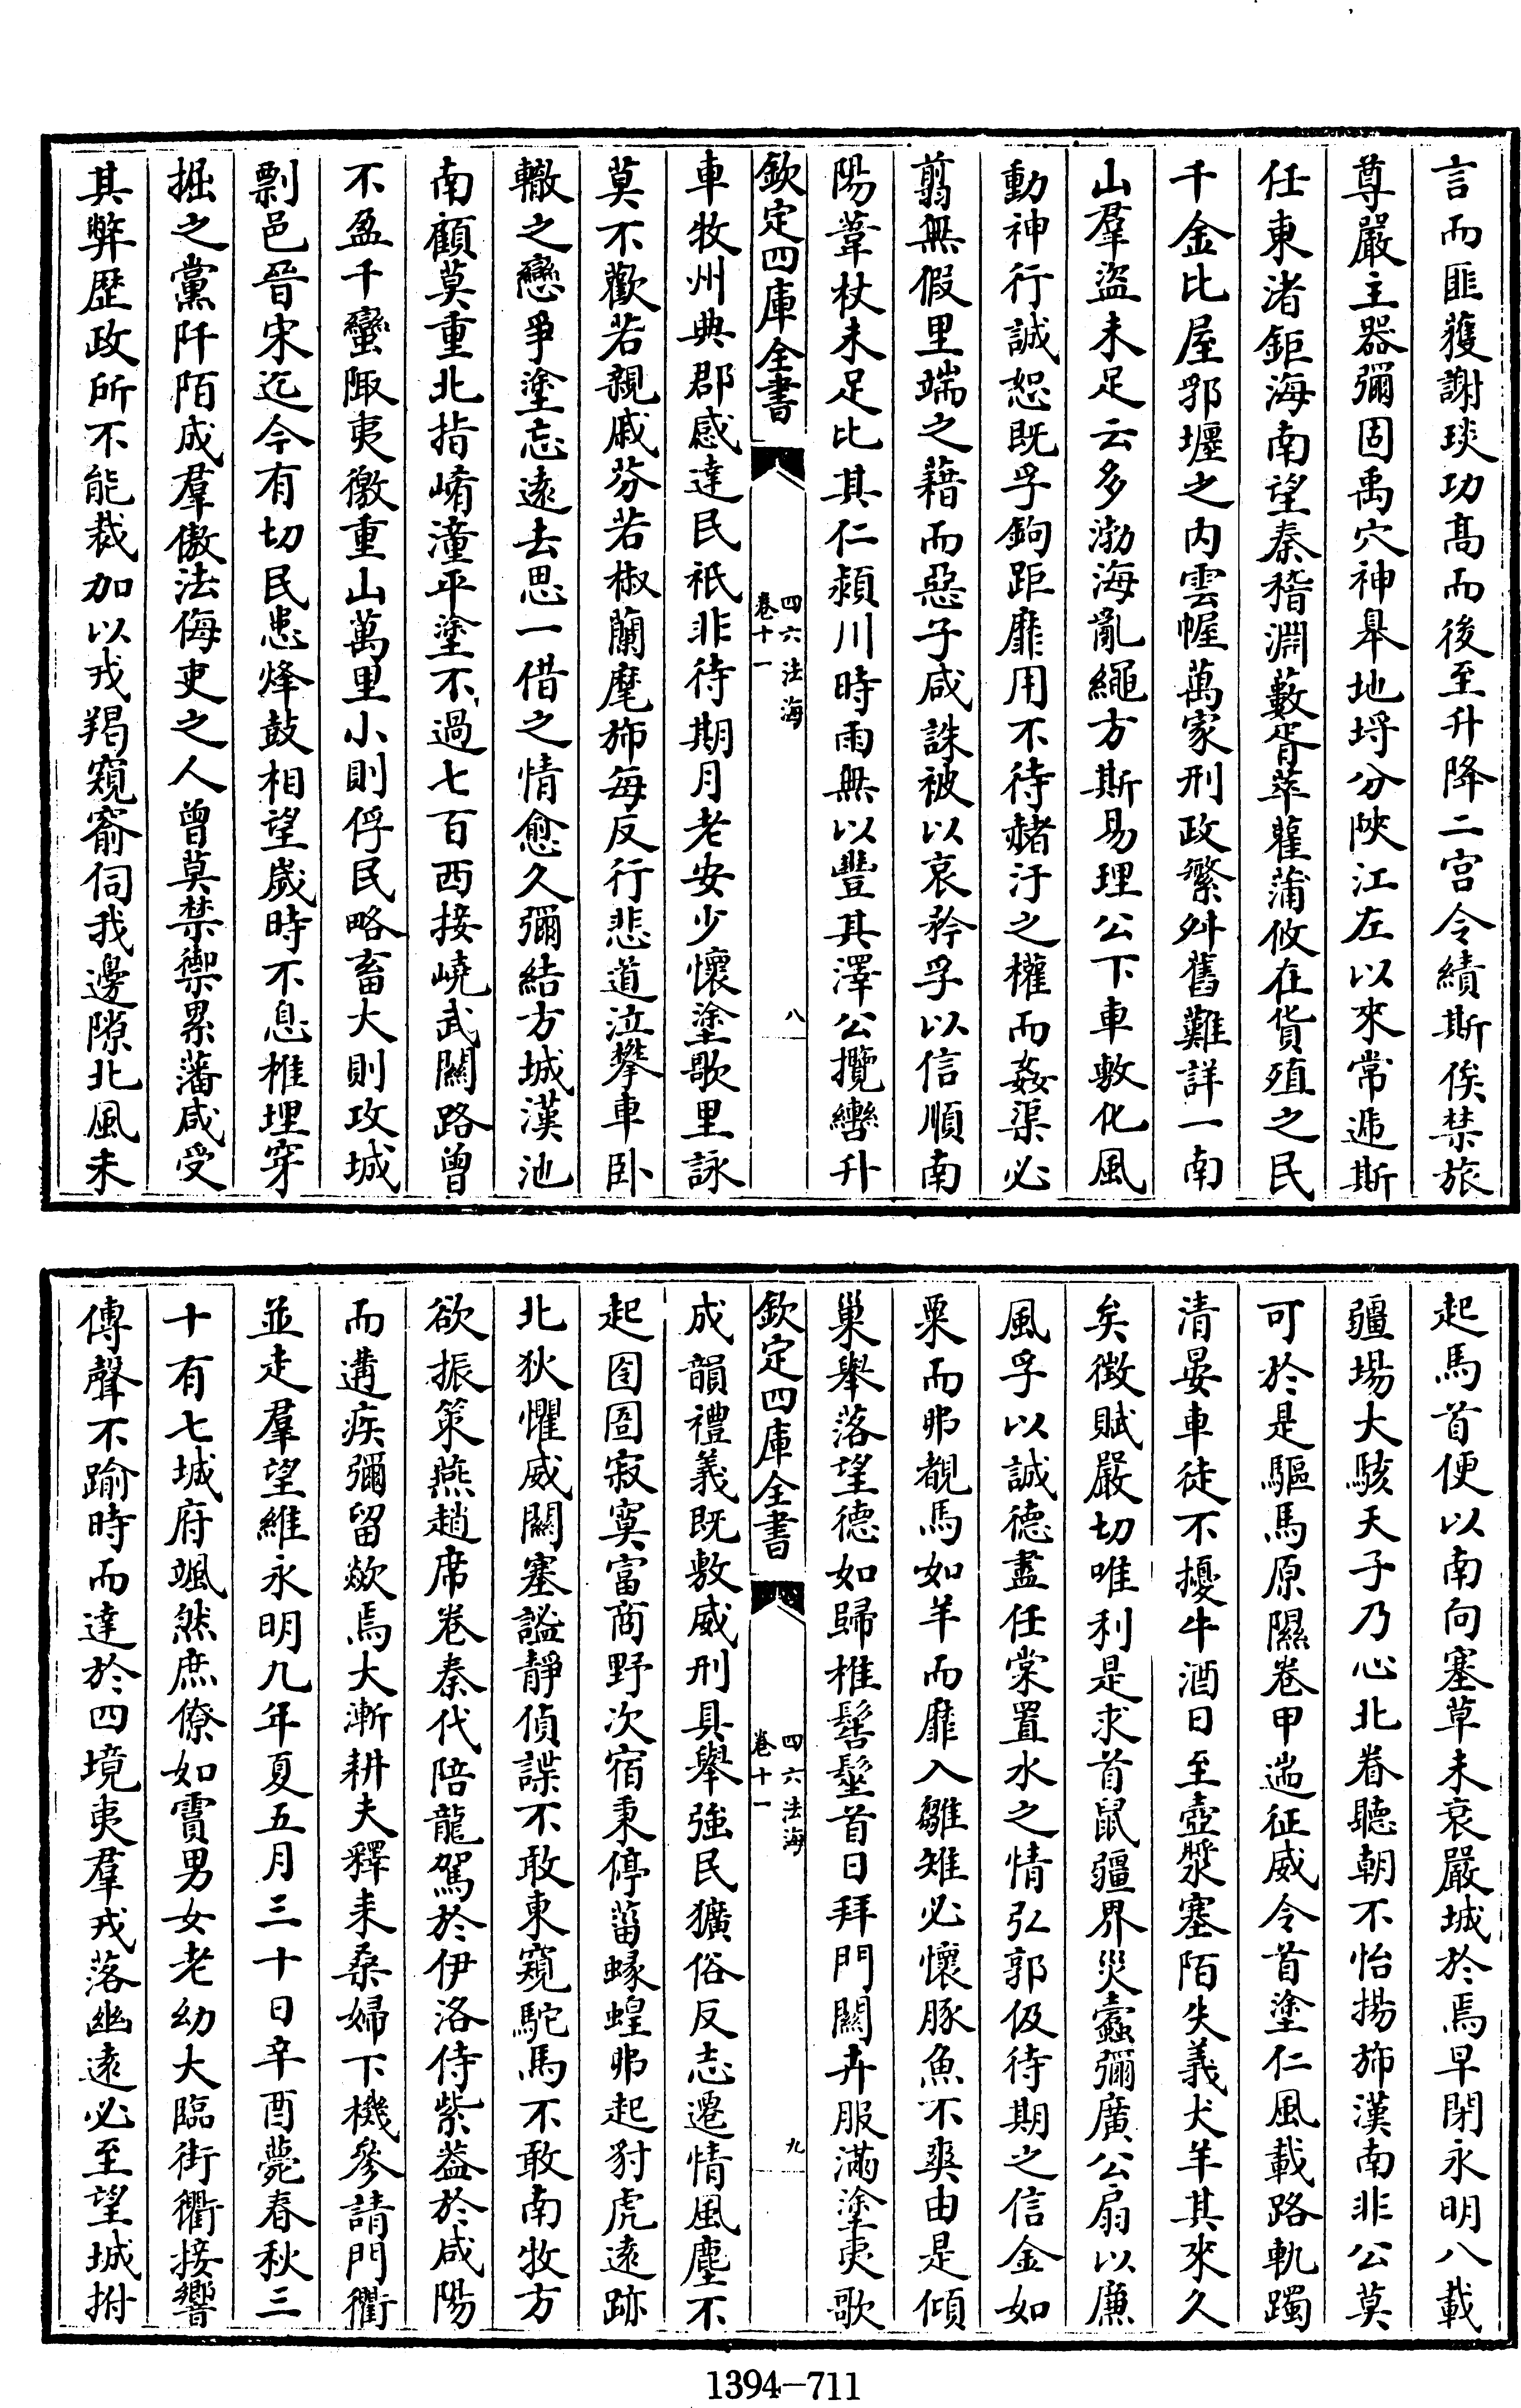 言而匪獲謝琰功高而後至升降二宮令績斯俟禁旅
尊嚴主器彌固禹穴神臯地埒分陜江左以來常遞斯
任東渚鉅海南望秦稽淵藪胥萃雚蒲攸在貨殖之民
千金比屋郛壥之内雲幄萬家刑政繁舛舊難詳一南
山羣盜未足云多渤海亂繩方斯易理公下車敷化風
動神行誠恕既孚鉤距靡用不待赭汙之權而姦渠必
翦無假里端之藉而惡子咸誅被以哀矜孚以信順南
陽葦杖未足比其仁潁川時雨無以豐其澤公攬轡升
欽定四庫全書
四六法海
卷十一
八
車牧州典郡感達民祇非待期月老安少懷塗歌里詠
莫不歡若親戚芬若椒蘭麾斾每反行悲道泣攀車卧
轍之戀爭塗忘遠去思一借之情愈久彌結方城漢池
南顧莫重北指崤潼平塗不過七百西接嶢武關路曾
不盈千蠻陬夷徼重山萬里小則俘民略畜大則攻城
剽邑晉宋迄今有切民患烽鼓相望歲時不息椎埋穿
掘之黨阡陌成羣傲法侮吏之人曾莫禁禦累藩咸受
其弊歷政所不能裁加以戎羯窺窬伺我邊隙北風未
起馬首便以南向塞草未衰嚴城於焉早閉永明八載
疆場大駭天子乃心北眷聽朝不怡揚斾漢南非公莫
可於是驅馬原隰卷甲遄征威令首塗仁風載路軌躅
清晏車徒不擾牛酒日至壺漿塞陌失義犬羊其來久
矣徵賦嚴切唯利是求首鼠疆界災蠹彌廣公扇以廉
風孚以誠德盡任棠置水之情弘郭伋待期之信金如
粟而弗覩馬如羊而靡入雛雉必懷豚魚不爽由是傾
巢舉落望德如歸椎髻髽首日拜門闕卉服滿塗夷歌
欽定四庫全書
四六法海
卷十一
九
成韻禮義既敷威刑具舉強民獷俗反志遷情風塵不
起囹圄寂寞富商野次宿秉停菑蝝蝗弗起豺虎遠跡
北狄懼威關塞謐靜偵諜不敢東窺駝馬不敢南牧方
欲振策燕趙席卷秦代陪龍駕於伊洛侍紫葢於咸陽
而遘疾彌留歘焉大漸耕夫釋耒桑婦下機參請門衢
並走羣望維永明九年夏五月三十日辛酉薨春秋三
十有七城府颯然庶僚如霣男女老幼大臨街衢接響
傳聲不踰時而達於四境夷羣戎落幽遠必至望城拊
1394—711